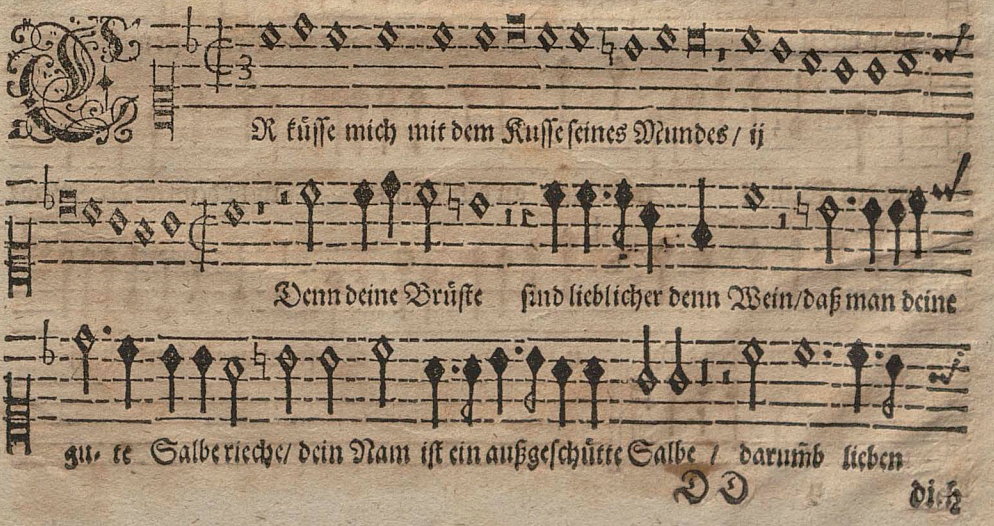 ER küsse mich mit dem Kusse seines Mundes / ij
Denn deine Brüste sind lieblicher denn Wein/ daß man deine
gu- te Salbe rieche/ dein Nam ist ein außgeschütte Salbe / darum̃b lieben
D D dich